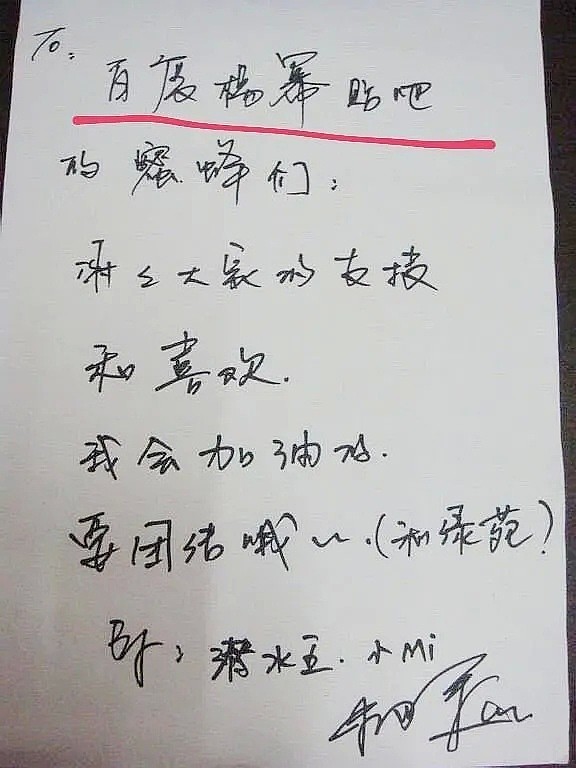 To:
百度杨幂贴吧
的蜜蜂们:
谢谢大家的支援
和喜欢.
我会加油的.
要团结哦~.(和绿苑)
By: 潜水王.小Mi
杨幂